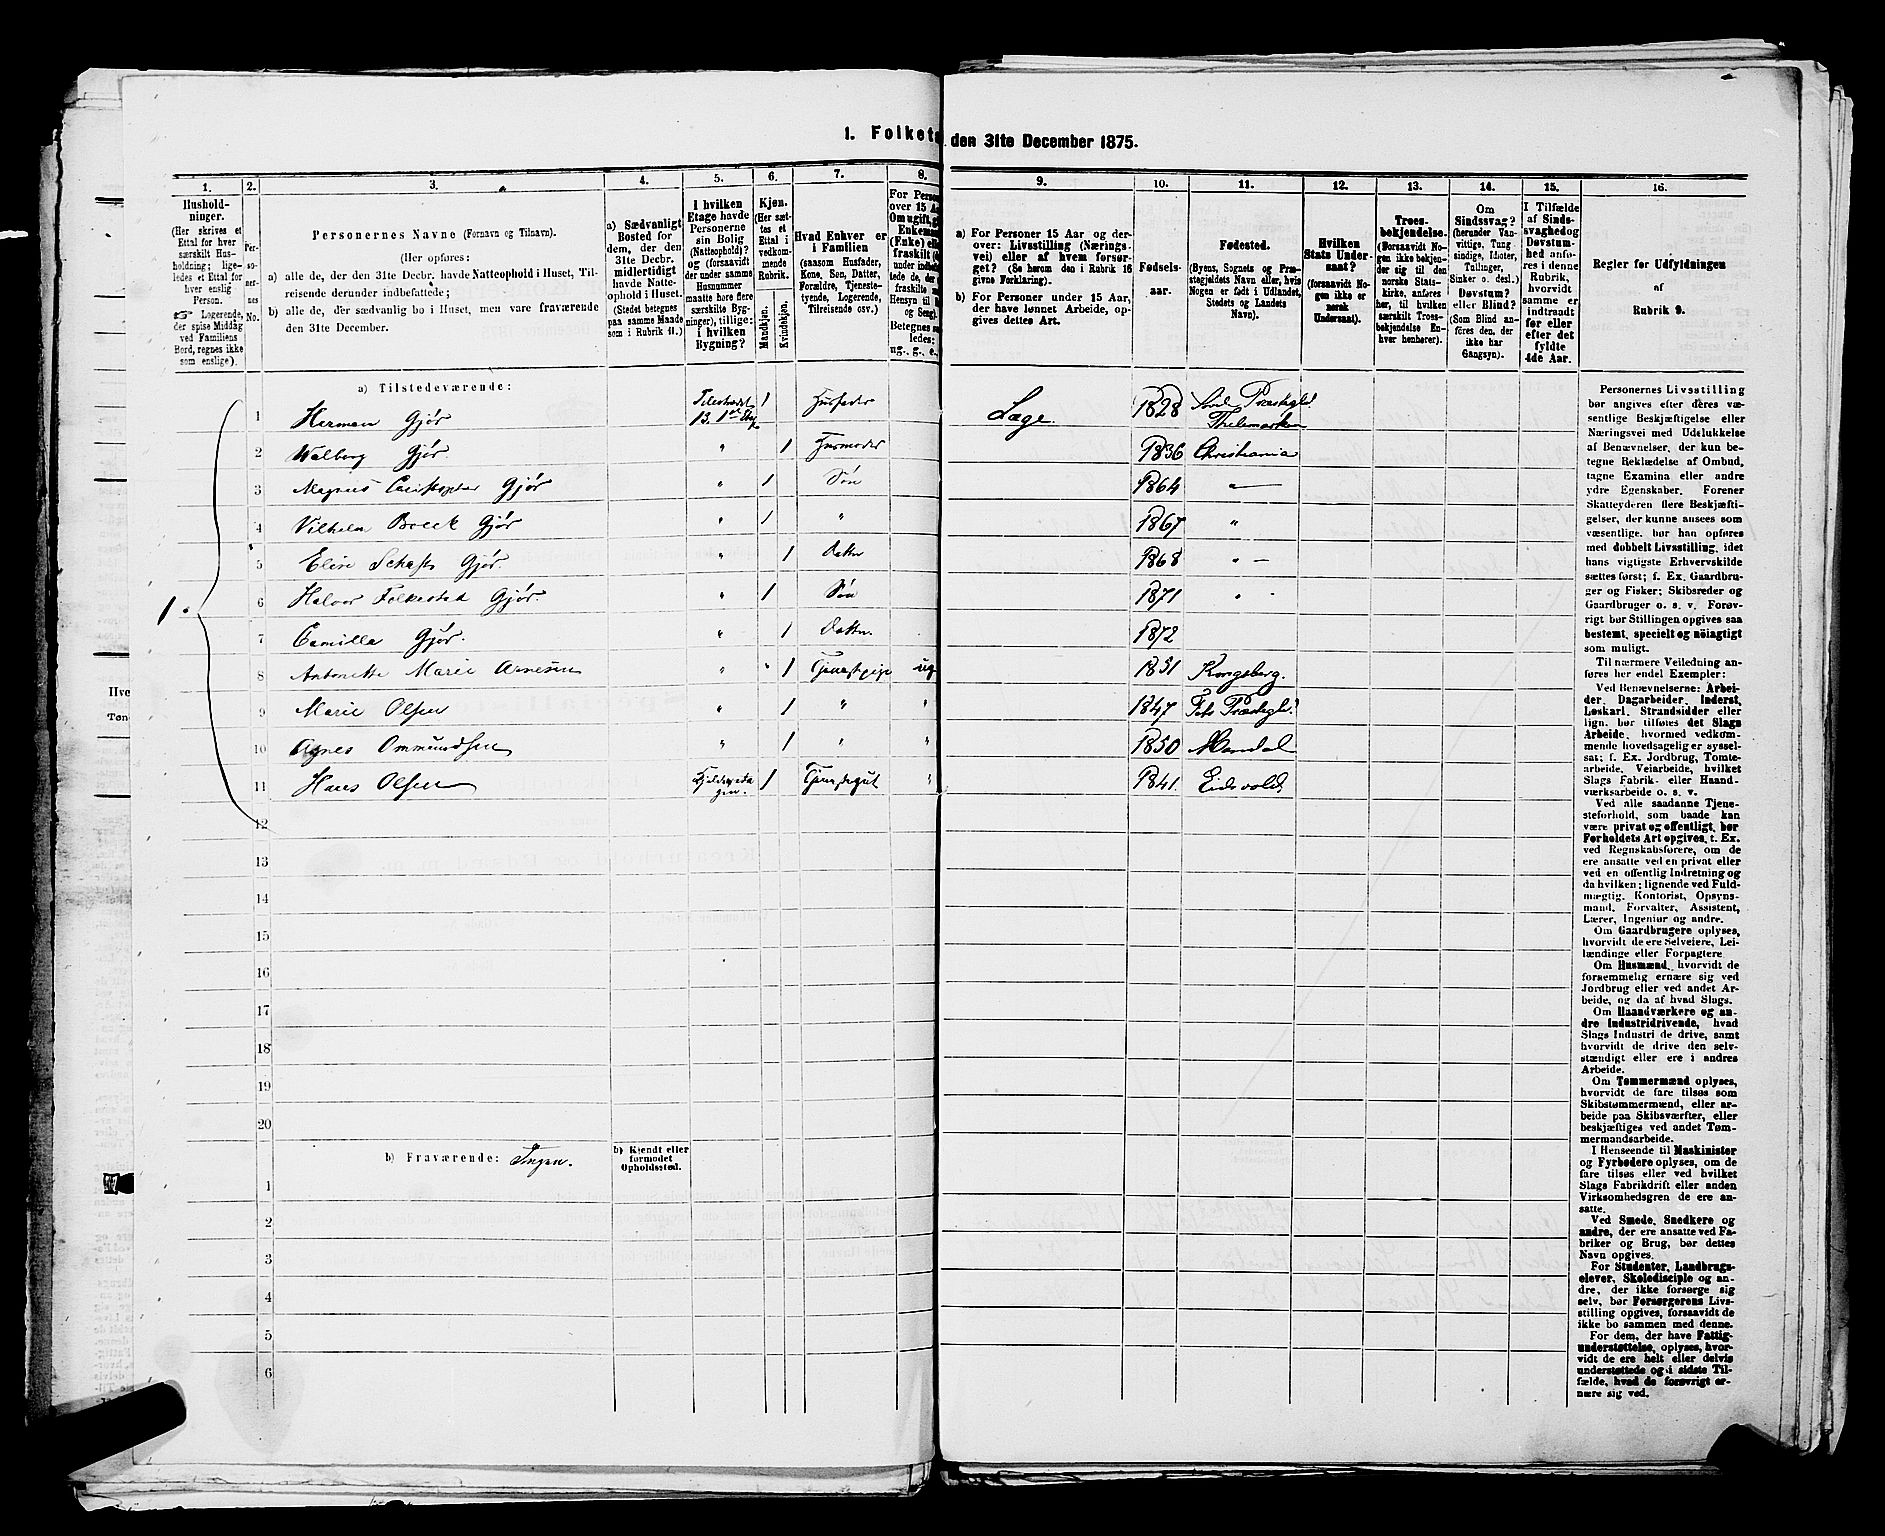 1. Folket den 31te December 1875.
1. 2. 3. 4. 5. 6. 7. 8. 9. 10. 11. 12. 13. 14. 15. 16.
Hushold-
ninger.
(Her skrives et
Ettal for hver
særskilt Hus-
holdning; lige-
ledes et Ettal for
hver enslig
Person.
☞ Logerende,
der spise Middag
ved Familiens
Bord, regnes ikke
som enslige).
Per-
so-
ner-
nes
No.
Personernes Navne (Fornavn og Tilnavn).
(Her opføres:
a) alle de, der den 31te Decbr. havde Natteophold i Huset, Til-
reisende derunder indbefattede;
b) alle de, der sædvanlig bo i Huset, men vare fraværende
den 31te December.
a) Sædvanligt
Bosted for
dem, der den
31te Decbr.
midlertidigt
havde Natte-
ophold i Huset.
(Stedet betegnes
paa samme Maade
som i Rubrik 11.)
I hvilken
Etage havde
Personerne
sin Bolig
(Natteophold)?
og (forsaavidt
der under samme
Husnummer
maatte høre flere
særskilte Byg-
ninger), tillige:
i hvilken
Bygning?
Kjøn.
(Her sæt-
tes et
Ettal i
vedkom-
mende
Rubrik.
Mandkjøn.
Kvindekjøn.
Hvad Enhver er
i Familien
(saasom Husfader,
Kone, Søn, Datter,
Forældre, Tjeneste-
tyende, Logerende,
Tilreisende osv.)
For Person
over 15 Aa
Om ugift, gi
Enkeman
(Enke) elle
fraskilt
a) For Personer 15 Aar og der-
over: Livsstilling (Nærings-
vei) eller af hvem forsør-
get? (Se herom den i Rubrik 16
givne Forklaring).
b) For Personer under 15 Aar,
der have lønnet Arbeide, op-
gives dettes Art.
Fødsels-
aar.
Fødested.
(Byens, Sognets og Præ-
stegjeldets Navn eller, hvis
Nogen er født i Udlandet,
Stedets og Landets
Navn).
Hvilken
Stats Under-
saat?
(forsaavidt No-
gen ikke er
norsk
Undersaat).
Troes-
bekjendelse.
(Forsaavidt No-
gen ikke bekjen-
der sig til den
norske Stats-
kirke, anføres
her, til hvilken
særskilt Troes-
bekjendelse En-
hver henhører).
Om
Sindssvag?
(herunder Van-
vittige, Tung
sindige, Idioter,
Tullinger,
Sinker o. desl.)
Døvstum?
eller Blind?
(Som Blind an-
føres den, der
ikke har
Gangsyn).
I Tilfælde
af Sinds-
svaghed og
Døvstum-
hed anfø-
res i denne
Rubrik,
hvorvidt
samme er
indtraadt
før eller
efter det
fyldte
4de Aar.
Regler for Udfyldningen
af
Rubrik 9.
a) Tilstedeværende:
1 Herman Gjør 13. 1 Husfader Læge. 1828 Thelemarken
2 Walborg Gjør " 1 Husmoder 1836 Christiania
3 Magnus Gjør " 1 Søn 1864 "
4 Vilhelm Boeck Gjør " 1 " 1867 "
5 Elise Gjør " 1 Datter 1868 "
6 Halvor Folkestad Gjør " 1 Søn 1871 "
7 Camilla Gjør " 1 Datter 1872
8 Antonette Marie Arnesen " 1 Tjenestepige ug 1851 Kongsberg.
9 Marie Olsen " 1 " " 1847 Præstegl.
10 Agnes Ommundsen " 1 " " 1850 Mandal
11 Hans Olsen 1 Tjenestegut " 1841. Eidsvold
1.
12
13
14
15
16
17
18
19
20
b) Fraværende: Ingen.
b) Kjendt eller
formodet
Opholdssted.
1
2
3
4
5
6
Personernes Livsstilling
bør angives efter deres væ-
sentlige Beskjæftigelse eller
Næringsvei med Udelukkelse
af Benævnelser, der kun be-
tegne Beklædelse af Ombud,
tagne Examina eller andre
ydre Egenskaber. Forener
Skatteyderen flere Beskjæfti-
gelser, der kunne ansees som
væsentlige, bør han opføres
med dobbelt Livsstilling, idet
hans vigtigste Erhvervskilde
sættes først; f. Ex. Gaardbru-
ger og Fisker; Skibsreder og
Gaardbruger o. s. v. Forøv-
rigt bør Stillingen opgives saa
bestemt, specielt og nøiagtigt
som muligt.
Til nærmere Veiledning an-
føres her endel Exempler:
Ved Benævnelserne: Arbei-
der, Dagarbeider, Inderst,
Løskarl, Strandsidder eller
lign. bør tilføies det Slags
Arbeide, hvormed vedkom-
mende hovedsagelig er syssel-
sat; f. Ex. Jordbrug, Tomte-
arbeide, Veiarbeide, hvilket
Slags Fabrik- eller Haand-
værksarbeide o. s. v.
Ved alle saadanne Tjene-
steforhold, som baade kan
være privat og offentligt, bør
Forholdets Art opgives, t. Ex.
ved Regnskabsførere, om de
ere ansatte ved en privat eller
ved en offentlig Indretning og
da hvilken; lignende ved Fuld-
mægtig, Kontorist, Opsyns-
mand, Forvalter, Assistent,
Lærer, Ingeniør og andre.
Om Gaardbrugere oplyses,
hvorvidt de ere Selveiere, Lei-
lændinge eller Forpagtere.
Om Husmænd, hvorvidt de
fornemmelig ernære sig ved
Jordbrug eller ved andet Ar-
beide, og da af hvad Slags.
Om Haandværkere og an-
dre Industridrivende, hvad
Slags Industri de drive, samt
hvorvidt de drive den selv-
stændigt eller ere i andres
Arbeide.
Om Tømmermænd oplyses,
hvorvidt de fare tilsøs som
Skibstømmermænd, eller ar-
beide paa Skibsværfter, eller
beskjæftiges ved andet Tøm-
mermandsarbeide.
I Henseende til Maskinister
og Fyrbødere oplyses, om de
fare tilsøs eller ved hvilket
Slags Fabrikdrift eller anden
Virksomhedsgren de ere an-
satte.
Ved Smede, Snedkere og
andre, der ere ansatte ved Fa-
briker og Brug, bør dettes
Navn opgives.
For Studenter, Landbrugs-
elever, Skoledisciple og an-
dre, der ikke forsørge sig
selv, bør Forsørgerens Livs-
stilling opgives, forsaavidt de
ikke bo sammen med denne.
For dem, der have Fattig-
understøttelse, oplyses, hvor-
vidt de ere helt eller delvis
understøttede og i sidste Til-
fælde, hvad de forøvrigt er-
nære sig ved.